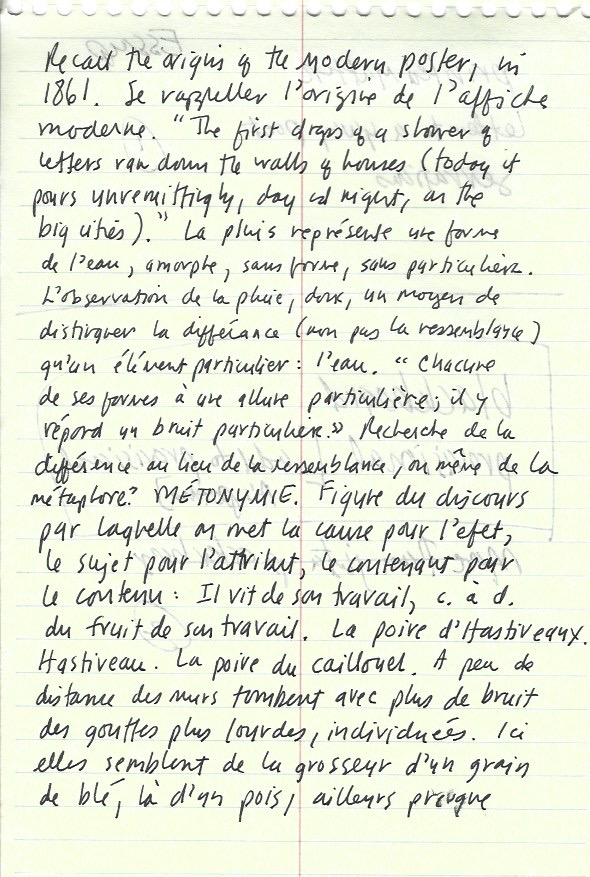 Recall the origins of the modern poster, in
1861. Se rappeller l'origine de l'affiche
moderne. "The first drops of a shower of
letters ran down the walls of houses (today it
pours unremittingly, day and night, on the
big cities)." La pluis représente une forme
de l'eau, amorphe, sans forme, sans particulière.
L'observation de la pluie, donc, un moyen de
distinguer la différance (non pas la ressemblance)
qu'un élément particulier: l'eau. "Chacune
de ses formes à une allure particulière; il y
répond un bruit particulière.» Recherche de la
différence au lieu de la ressemblance, ou même de la
métaphore? MÉTONYMIE. Figure du discours
par laquelle on met la cause pour l'efet,
le sujet pour l'attribut, le contenant pour
le contenu: Il vit de son travail, c. à d.
du fruit de son travail. La poire d'Hastiveaux.
Hastiveau. La poire du caillouel. A peu de
distance des murs tombent avec plus de bruit
des gouttes plus lourdes, individuées. Ici
elles semblent de la grosseur d'un grain
de blé, là d'un pois, ailleurs presque